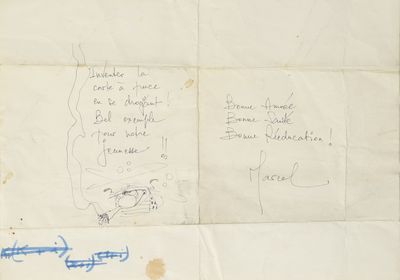 Inventer la
carte à puce
en se droguant !
Bel exemple
pour notre
jeunesse !!
Bonne Année
Bonne Santé
Bonne Rééducation !
Marcel